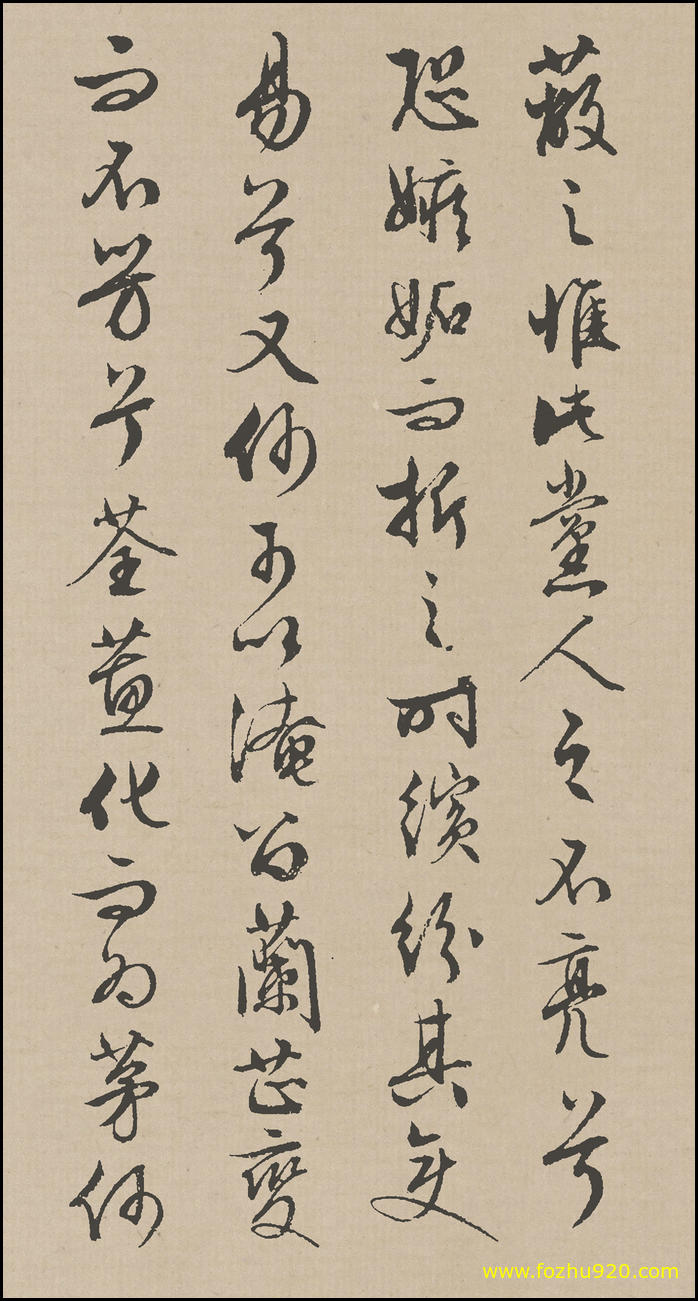 蔽之惟此黨人之不亮兮
恐嫉妬而折之時繽紛其
易兮又何可以淹留蘭芷變
而不芳兮荃蕙化而為茅何
www.fozhu920.com